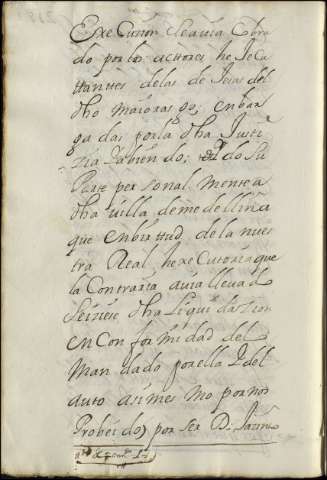 Exe Cucion le avia Cobra
do por los actores he xe Cu
tantes de las de Jesas del
dho maioras go, enbar
ga das por la dha Justi
zia Yabien do, do su
Parte per sonal mente a
dha villa de me de llin a
que en bir ttud de la nues
tra Real he xe Cutoria que
la Contraria avia llevad
se iziese dha Liqui da zion
en Con for mi dad del
Man dado por ella Y del
auto asimes mo por nos
Probei do, por ser D. Jazin